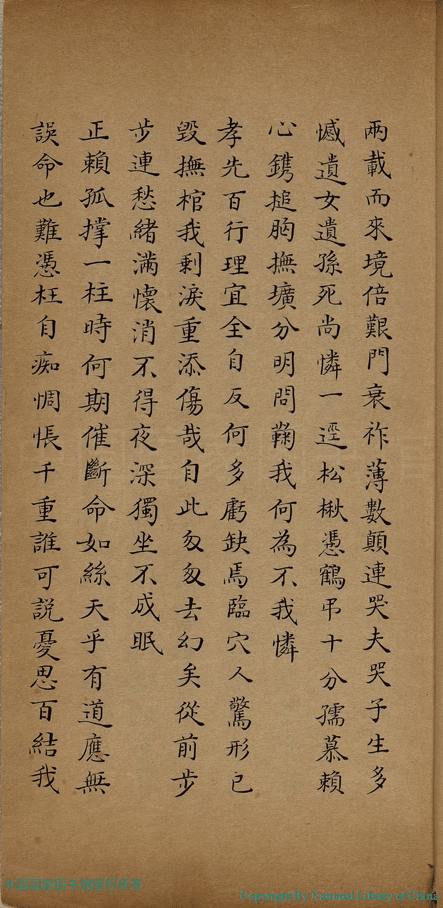 兩載而來境倍艱門衰祚薄數顛連哭夫哭子生多
憾遺女遺孫死尚憐一逕松楸憑鶴弔十分孺慕賴
心鐫搥胸撫壙分明問鞠我何為不我憐
孝先百行理宜全自反何多虧缺焉臨穴人驚形已
毀撫棺我剩淚重添傷哉自此匆匆去幻矣從前步
步連愁緒滿懷消不得夜深獨坐不成眠
正賴孤撐一柱時何期催斷命如絲天乎有道應無
誤命也難憑枉自痴惆悵千重誰可説憂思百結我
Copyright by National Library of China